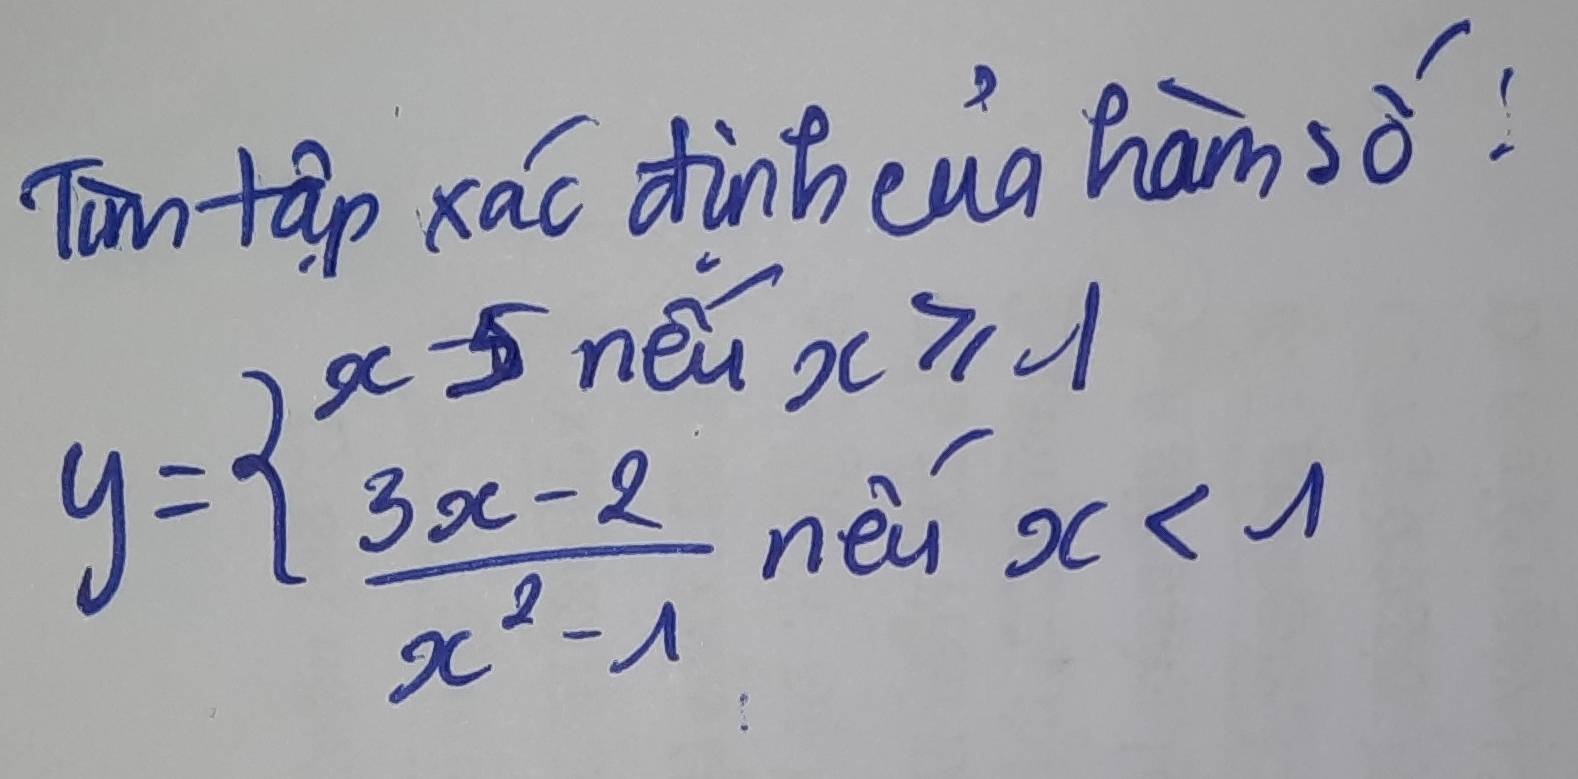 Tìm tập xác định của hàm số:
y = { x - 5 nếu x ≥ 1
3x - 2 / x² - 1 nếu x < 1